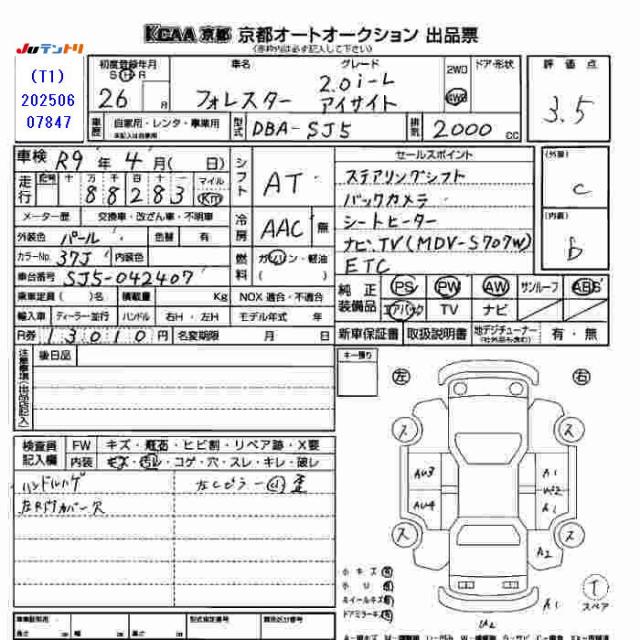 Juテントリ
KCAA 京都 京都オートオークション 出品票
(赤枠内は必ず記入して下さい)
(T1)
202506
07847
初度登録年月 車名 グレード ドア・形状 評価点
S H R
26 R フォレスター 2.0i-L アイサイト 2WD 4WD 3.5
車歴 自家用・レンタ・事業用 型式 DBA-SJ5 排気 2000 cc
未記入は自家用
車検 R9年 4月( 日) シフト AT
走行 十 万 千 百 十 一 マイル
88283 Km
メーター歴 交換車・改ざん車・不明車
外装色 パール 色替 有
冷房 AAC 無
カラーNo. 37J 内装色
燃料 ガソリン・軽油
( )
車台番号 SJ5-042407
乗車定員( )名 積載量 Kg NOX 適合・不適合
輸入車 ディーラー 並行 ハンドル 右H・左H モデル年式 年
R券 13010円 名変期限 月 日
セールスポイント
ステアリングシフト
バックカメラ
シートヒーター
ナビ、TV(MDV-S707W)
ETC
(外装)
C
(内装)
b
純正装備品 PS PW AW サンルーフ ABS
エアバック TV ナビ
新車保証書 取扱説明書 地デジチューナー 有・無
(社外品も含む)
注意事項(出品店記入)
後日品
キー預り
検査員記入欄 FW キズ・飛石・ヒビ割・リペア跡・X要
内装 キズ・汚レ・コゲ・穴・スレ・キレ・破レ
ハンドルハゲ
左 右
ス ス
AU3 A1
AU4 A1
ス ス
A2
A1
小キズ 有
小凹 有
ホイールキズ 有
ドアミラーキズ 有
T
スペア
型式指定番号 類別区分番号
長さ cm 幅 cm 高さ cm